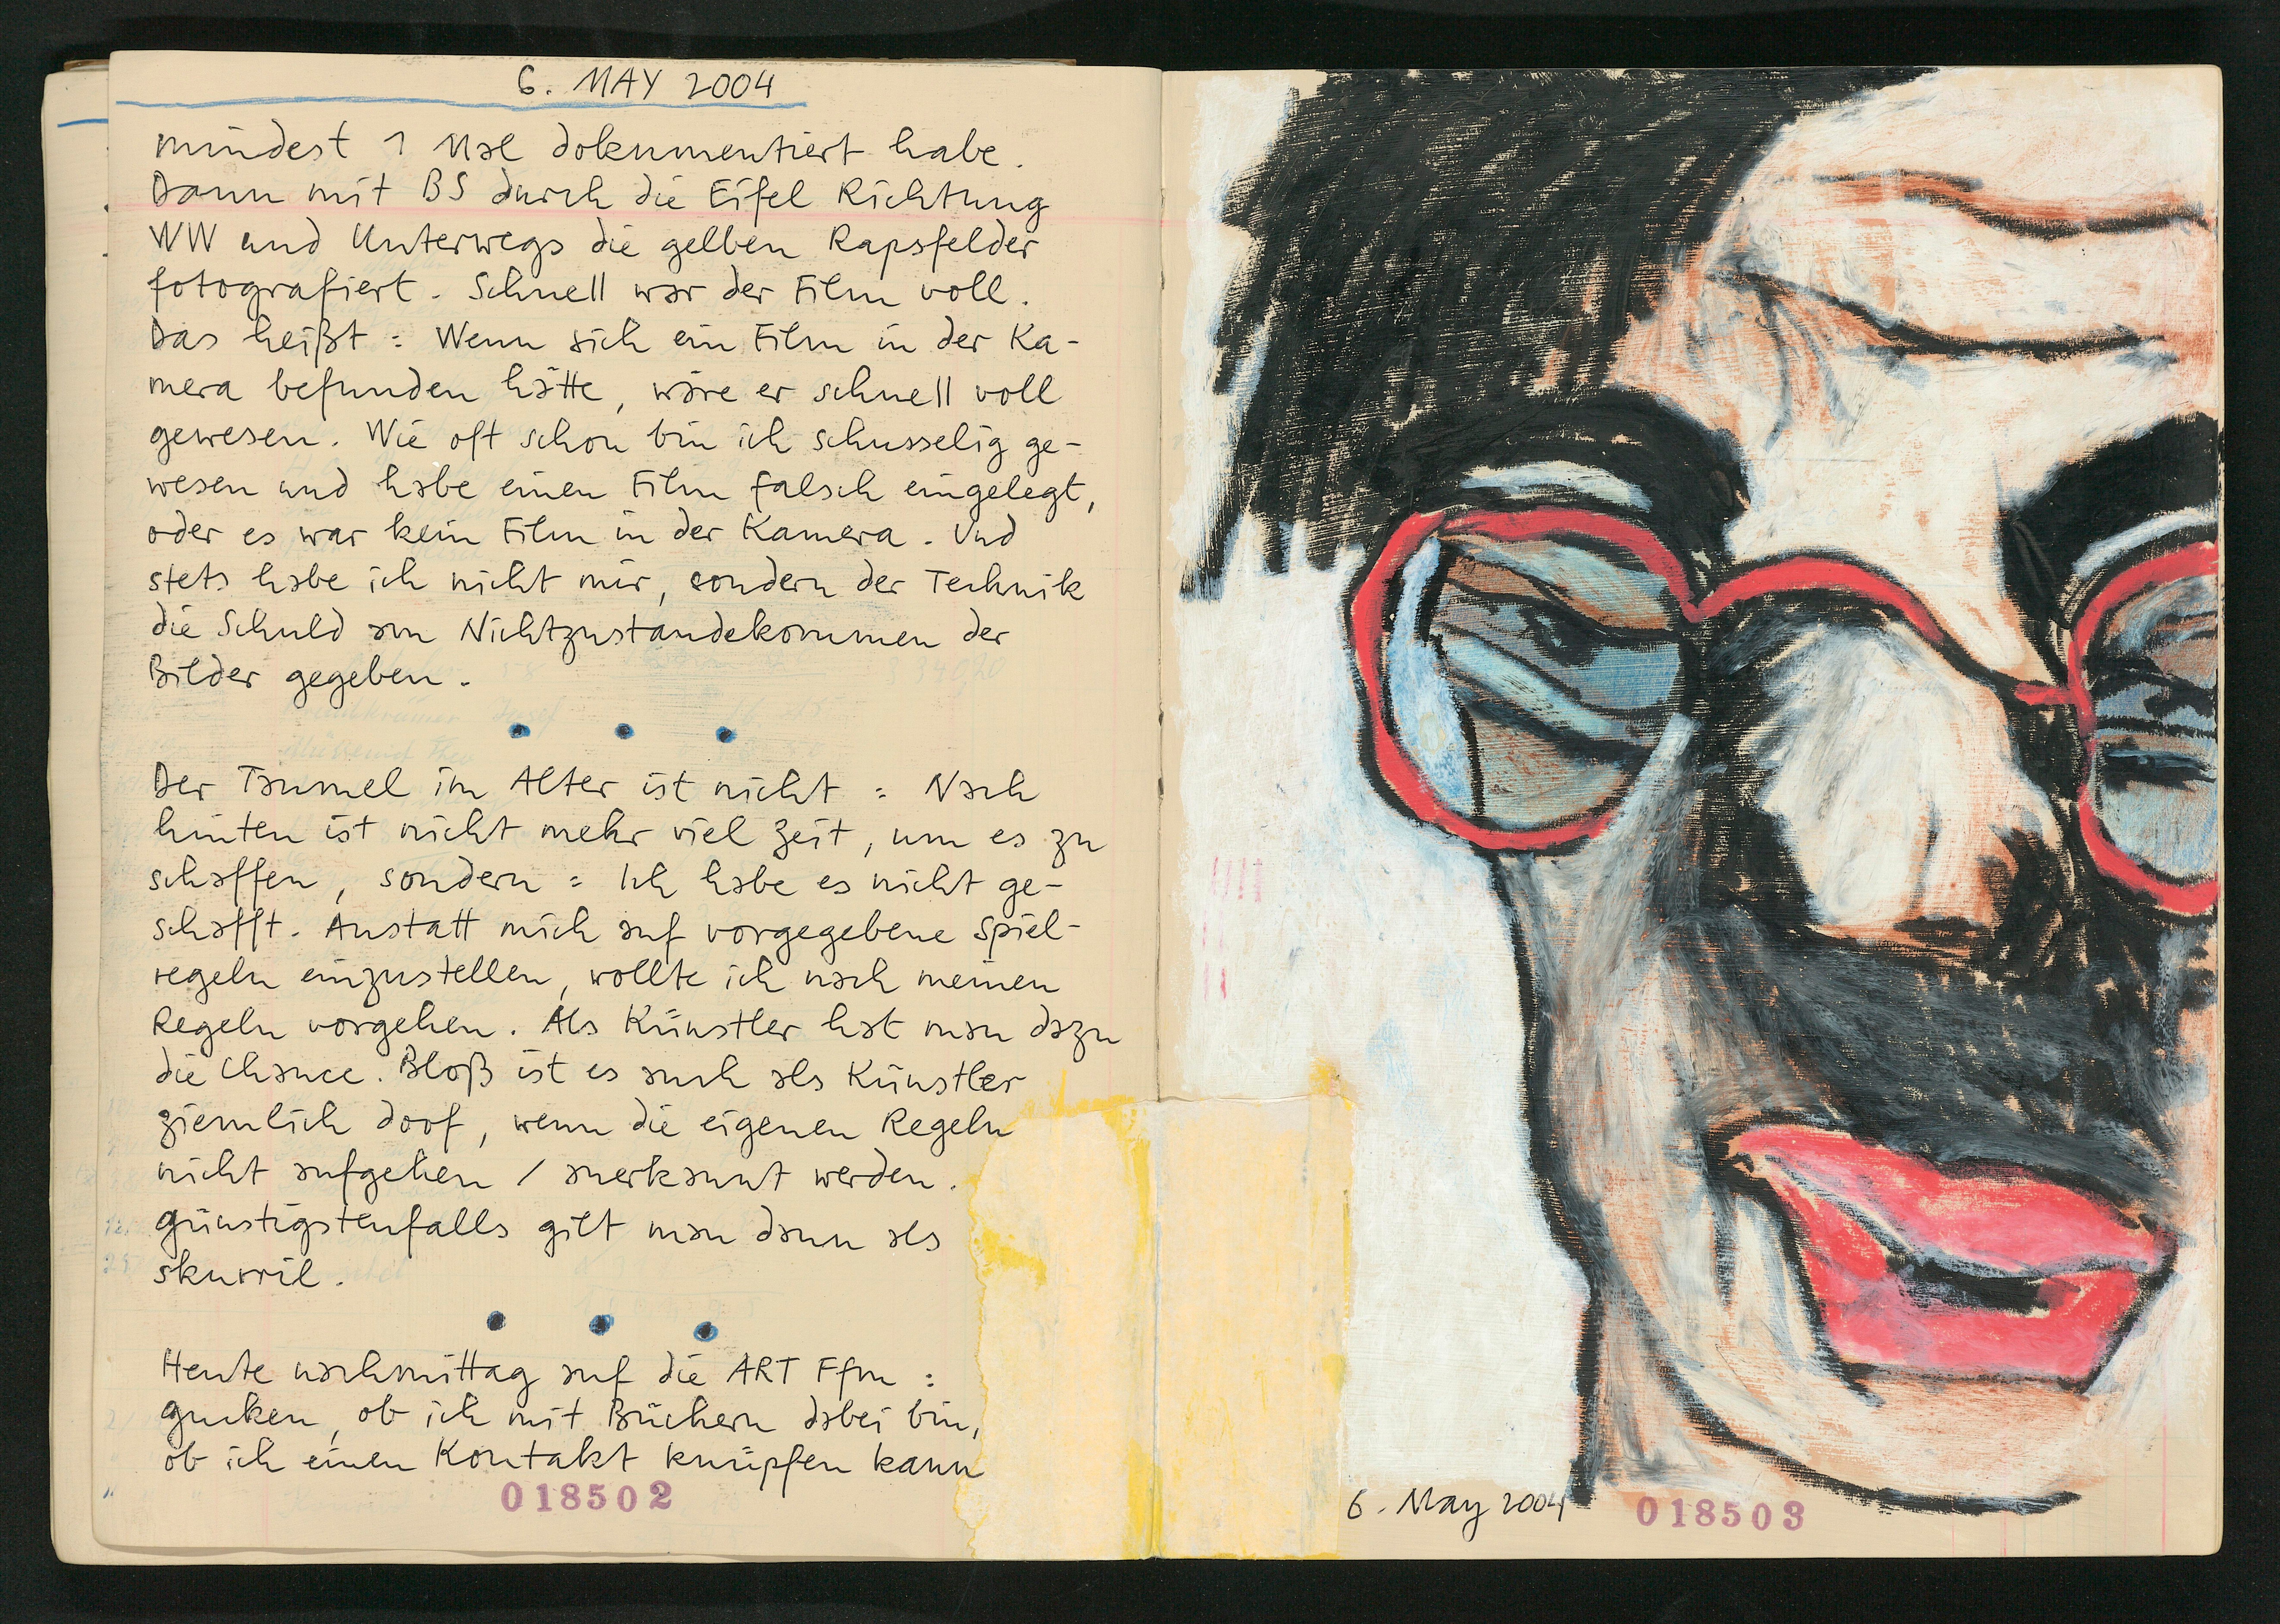 6. MAY 2004
mindest 1 Mal dokumentiert habe.
Dann mit BS durch die Eifel Richtung
WW und Unterwegs die gelben Rapsfelder
fotografiert. Schnell war der Film voll.
Das heißt: Wenn sich ein Film in der Ka-
mera befunden hätte, wäre er schnell voll
gewesen. Wie oft schon bin ich schusselig ge-
wesen und habe einen Film falsch eingelegt,
oder es war kein Film in der Kamera. Und
stets habe ich nicht mir, sondern der Technik
die Schuld am Nichtzustandekommen der
Bilder gegeben.
Der Taumel im Alter ist nicht: Nach
hinten ist nicht mehr viel Zeit, um es zu
schaffen, sondern: Ich habe es nicht ge-
schafft. Anstatt mich auf vorgegebene Spiel-
regeln einzustellen, wollte ich nach meinen
Regeln vorgehen. Als Künstler hat man dazu
die Chance. Bloß ist es auch als Künstler
ziemlich doof, wenn die eigenen Regeln
nicht aufgehen / anerkannt werden.
günstigstenfalls gilt man dann als
skurril.
Heute nachmittag auf die ART Ffm:
gucken, ob ich mit Büchern dabei bin,
ob ich einen Kontakt knüpfen kann
018502
6. May 2004
018503